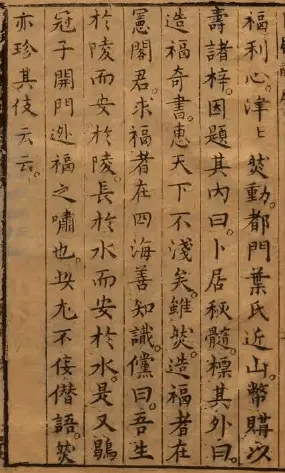 福利心。津〻然動。都門葉氏近山。幣購以
壽諸梓。因題其內曰。卜居秘髓。標其外曰。
造福奇書。惠天下不淺矣。雖然。造福者在
憲閣君。求福者在四海善知識。儻曰。吾生
於陵而安於陵。長於水而安於水。是又鶡
冠子開門逃福之嘯也。坱圠不佞僣語。然
亦珍其伎云云。